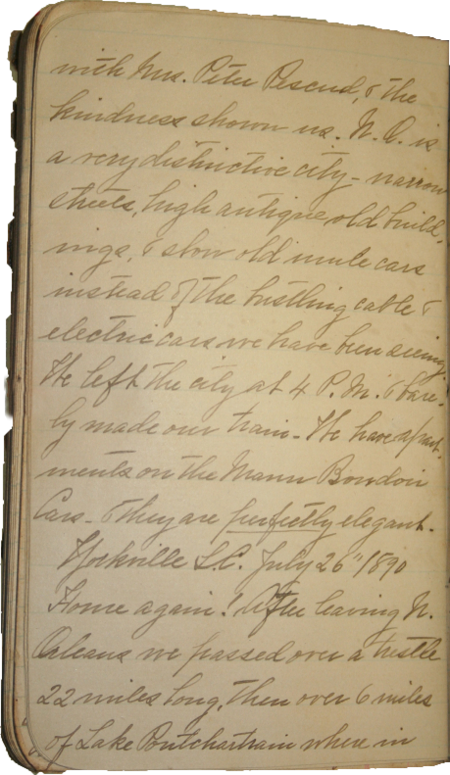 with Mrs. Peter Pescud, & the
kindness shown us. N. O. is
a very distinctive city - narrow
streets, high antique, old build-
ings, & slow old mule cars
instead of the bustling cable &
electric cars we have been seeing.
We left the city at 4 P. M. & bare-
ly made our train - We have apart-
ments on the Mann Boudoir
Cars - & they are perfectly elegant.
Yorkville S.C. July 26" 1890
Home again! After leaving N.
Orleans we passed over a trestle
22 miles long, then over 6 miles
of Lake Pontchartrain where in